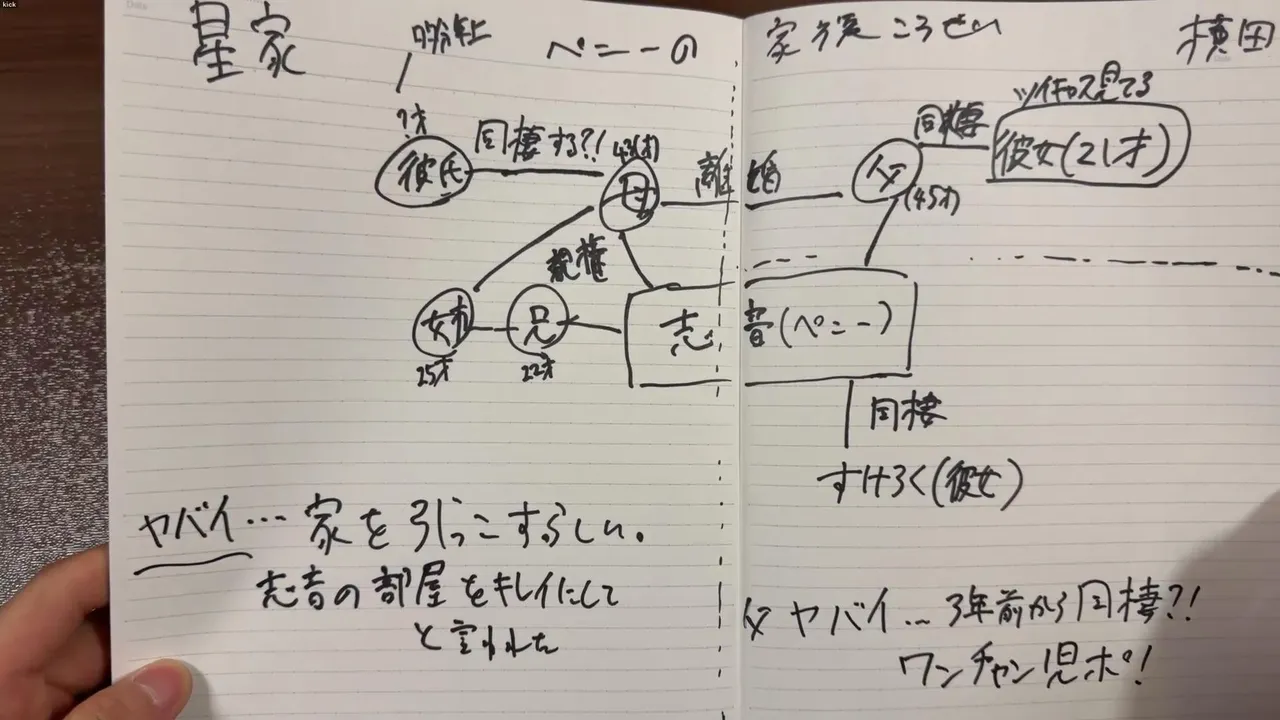 kick
星家
ペニーの
家族こうせい
横田
多分年上
ツイキャス見てる
?才
彼氏
同棲する?!
43(才)
母
離婚
父
(45才)
同棲
彼女(21才)
親権
姉
25才
兄
22才
志音(ペニー)
同棲
すけろく(彼女)
ヤバイ… 家を引っこすらしい。
志音の部屋をキレイにして
と言われた
父 ヤバイ… 3年前から同棲?!
ワンチャン児ポ!